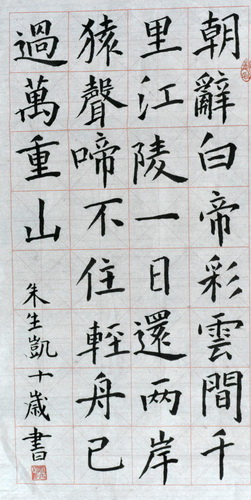 朝辭白帝彩雲間千
里江陵一日還兩岸
猿聲啼不住輕舟已
過萬重山
朱生凱十歲書